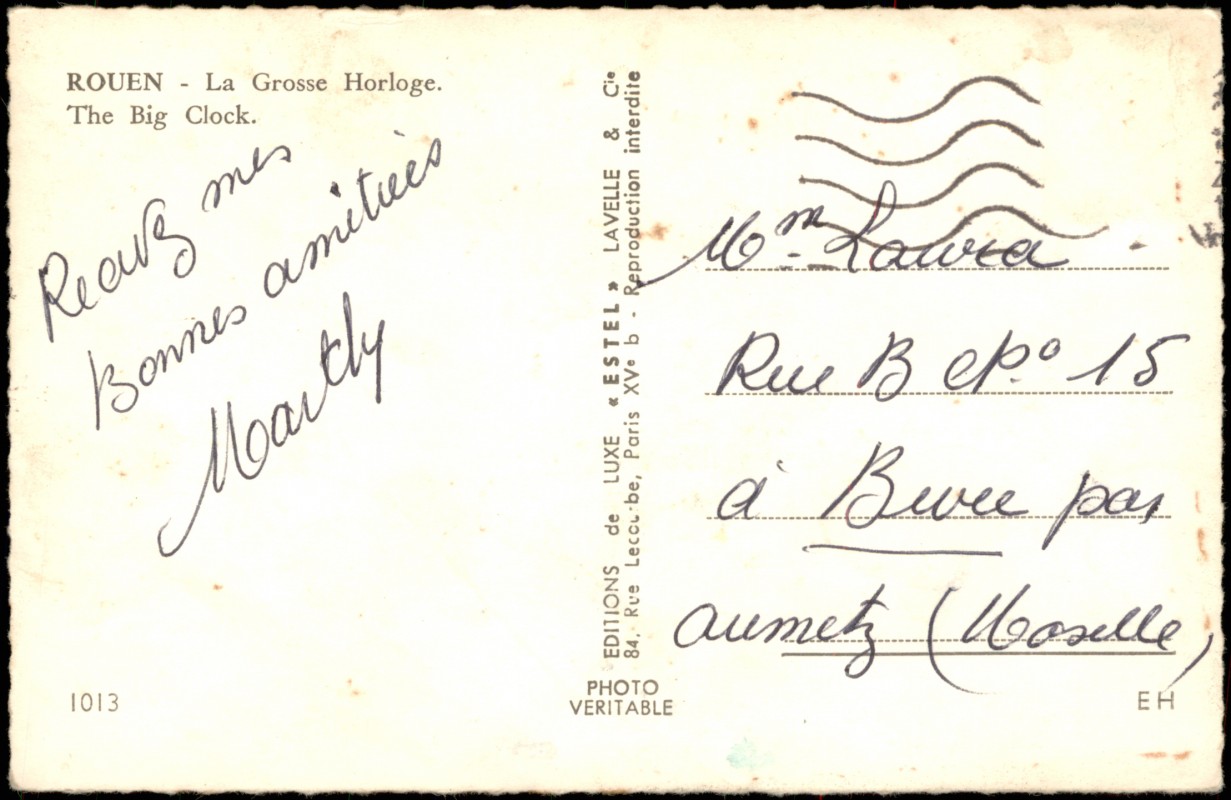 ROUEN - La Grosse Horloge.
The Big Clock.
mes
Bonnes amitiés
EDITIONS de LUXE « ESTEL » LAVELLE & Cie
84, Rue Lecourbe, Paris XVe b - Reproduction interdite
PHOTO
VERITABLE
Mm - Lawra
Rue B No 15
à par
aumetz (Moselle)
1013
EH